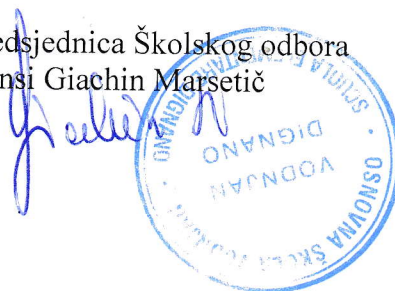 edsjednica Školskog odbora
nsi Giachin Marsetič
OSNOVNA ŠKOLA VODNJAN
SCUOLA ELEMENTARE DIGNANO
VODNJAN
DIGNANO